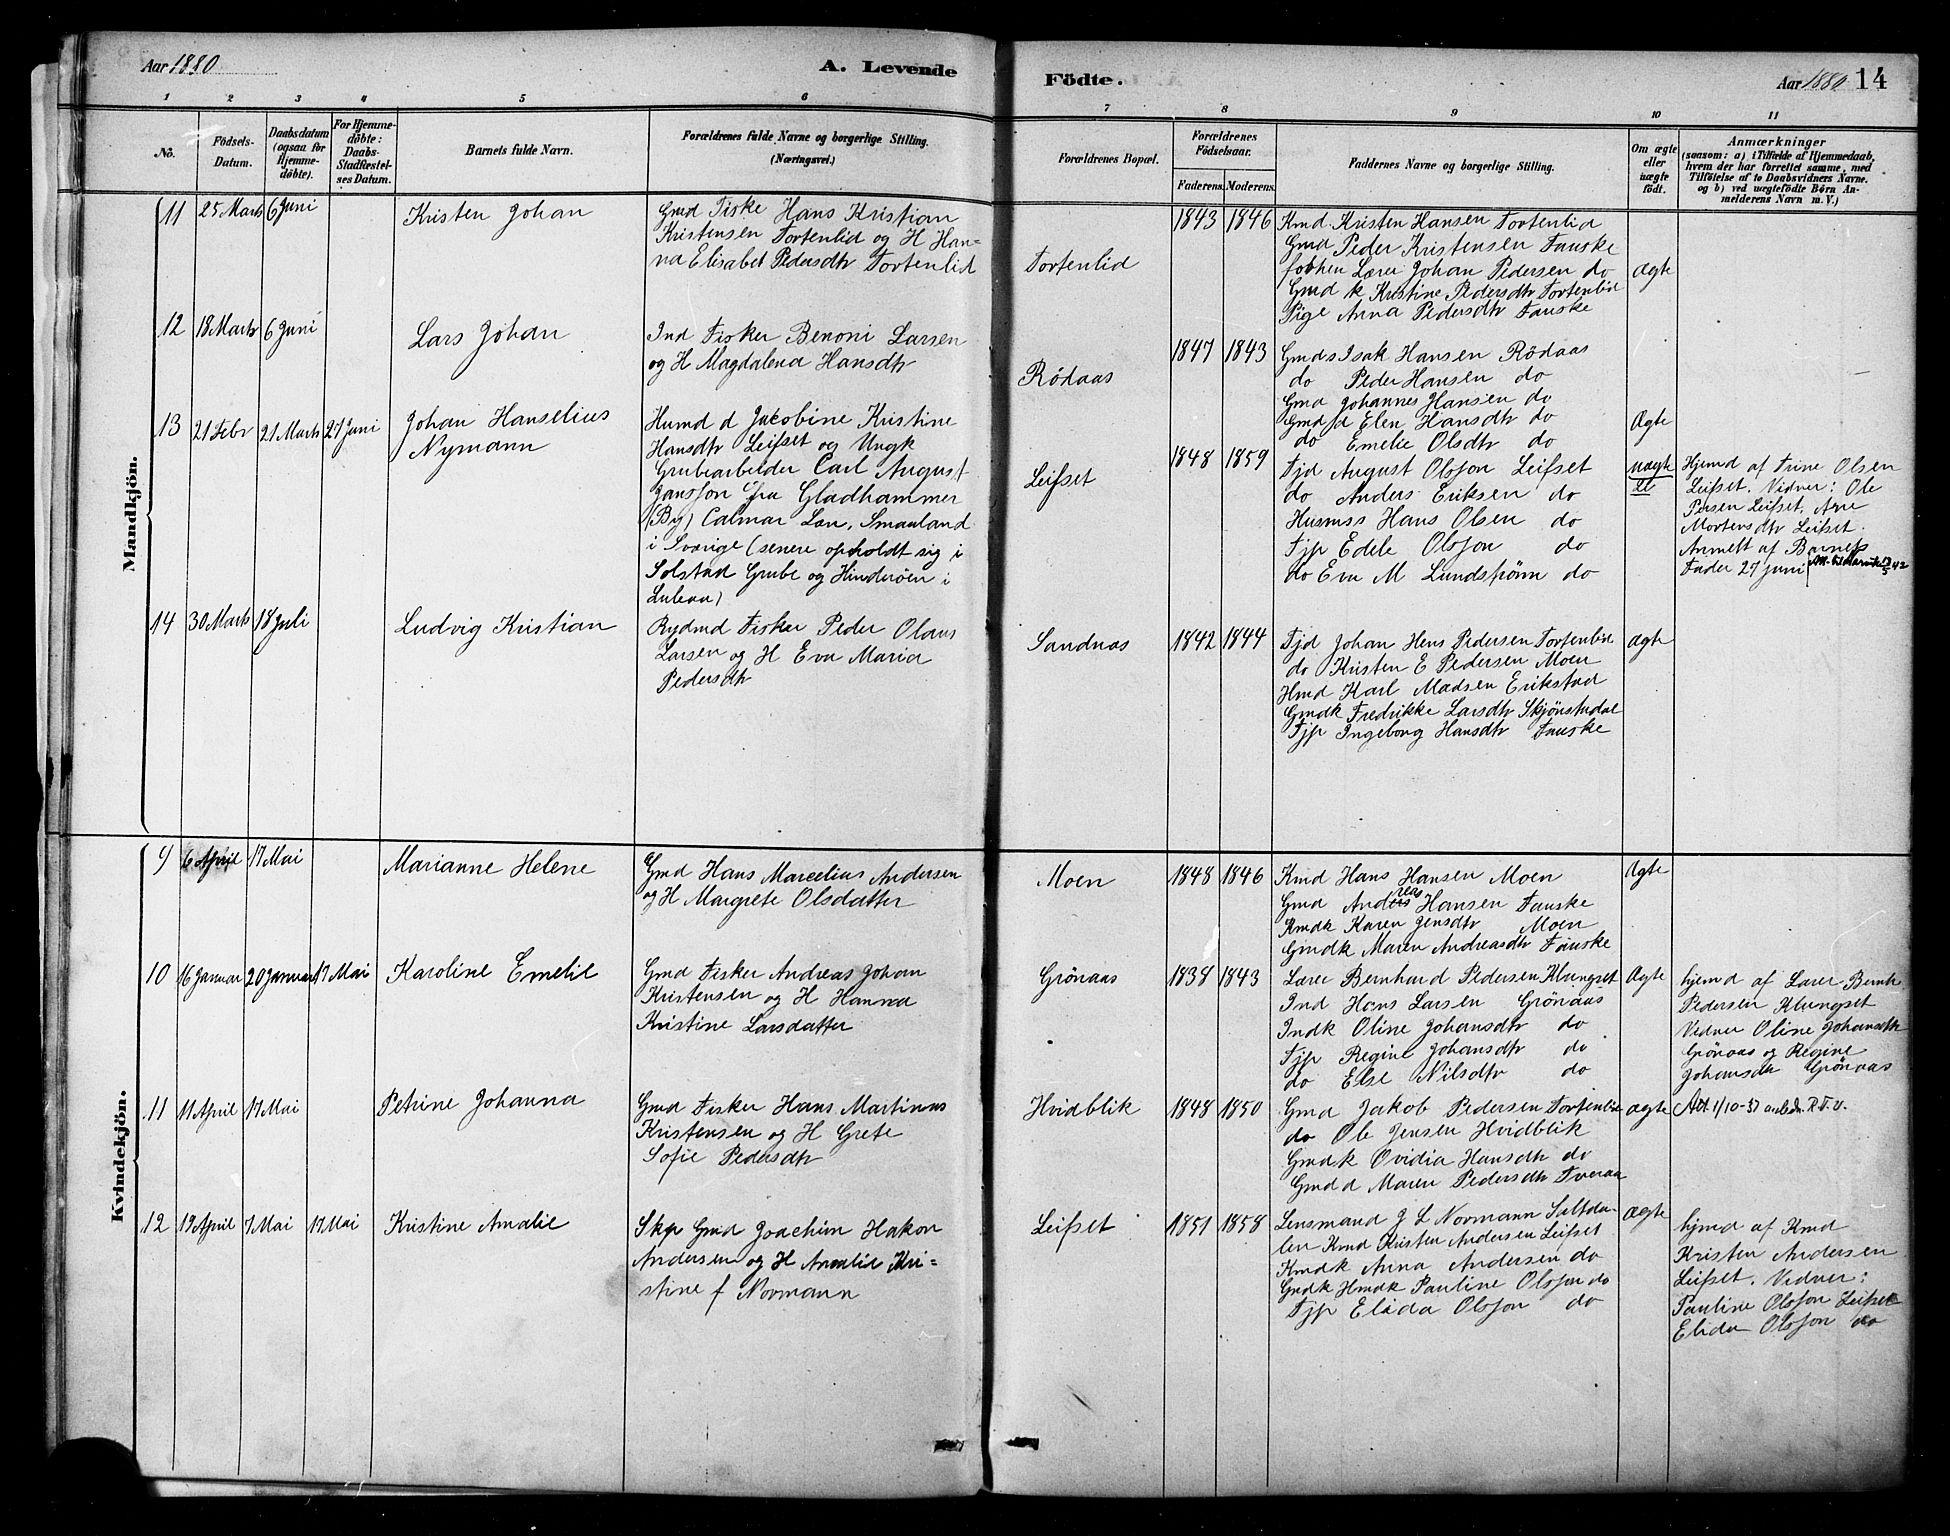 Aar 1880
A. Levende
Födte.
Aar 1880 14
1 2 3 4 5 6 7 8 9 10 11
No.
Födsels-
Datum.
Daabsdatum
(ogsaa for
Hjemme-
döbte).
For Hjemme-
döbte:
Daabs-
Stadfæstel-
ses Datum.
Barnets fulde Navn.
Forældrenes fulde Navne og borgerlige Stilling.
(Næringsvei.)
Forældrenes Bopæl.
Forældrenes
Födselsaar.
Faderens. Moderens.
Faddernes Navne og borgerlige Stilling.
Om ægte
eller
uægte
födt.
Anmærkninger
(saasom: a) i Tilfælde af Hjemmedaab,
hvem der har forrettet samme, med
Tilföielse af to Daabsvidners Navne.
og b) ved uægtefödte Börn An-
melderens Navn m. V.)
Mandkjön.
11 25 Marts 6 Juni
Kristen Johan
Gmd Fiske Hans Kristian
Kristensen Tortenlid og H Han-
na Elisabet Pedersdtr Tortenlid
Tortenlid
1843 1846
Kmd Kristen Hansen Tortenlid
Gmd Peder Kristensen Fauske
Lærer Johan Pedersen do
Gmd k Kristine Pedersdtr Tortenlid
Pige Anna Pedersdtr Fauske
Ægte
12 18 Marts 6 Juni
Lars Johan
Ind Fisker Benoni Larsen
og H Magdalena Hansdtr
Rödaas
1847 1843
Gmds Isak Hansen Rödaas
do Peder Hansen do
Gmd Johannes Hansen do
Gmd d Elen Hansdtr do
do Emelie Olsdtr do
Ægte
13 21 Febr 21 Marts 27 Juni
Johan Hanselius
Nymann
Husmd d Jakobine Kristine
Hansdtr Leifset og Ungk
Grubearbeider Carl August
Jansson fra Gladhammer
(By) Calmar Län, Smaaland
i Sverige (senere opholdt sig i
Solstad Grube og Hinderöen i
Luleaa)
Leifset
1848 1859
Tjd August Olsson Leifset
do Anders Eriksen do
Husmss Hans Olsen do
Tjp Edele Olsson do
do Eva M Lundström do
uægte
Hjemd af Trine Olsen
Leifset. Vidner: Ole
Persen Leifset, Ane
Mortensdtr Leifset.
Anmelt af Barnets
Fader 27 juni
14 30 Marts 18 Juli
Ludvig Kristian
Rydmd Fisker Peder Olaus
Larsen og H Eva Maria
Pedersdtr
Sandnas
1842 1844
Tjd Johan Hens Pedersen Tortenlid
do Kristen E Pedersen Moen
Hmd Karl Madsen Erikstad
Gmdk Fredrikke Larsdtr Skjönstudal
Tjp Ingeborg Hansdtr Fauske
Ægte
Kvindekjön.
9 6 April 17 Mai
Marianne Helene
Gmd Hans Marcelius Andersen
og H Margrete Olsdatter
Moen
1848 1846
Kmd Hans Hansen Moen
Gmd Andreas Hansen Fauske
Kmdk Karen Jensdtr Moen
Gmdk Maren Andreasdtr Fauske
Ægte
10 16 Januar 20 Januar 17 Mai
Karoline Emelie
Gmd Fisker Andreas Johan
Kristensen og H Hanna
Kristine Larsdatter
Grönaas
1838 1843
Lærer Bernhard Pedersen Klungset
Ind Hans Larsen Grönaas
Indk Oline Johansdtr do
Tjp Regine Johansdtr do
do Else Nilsdtr do
Ægte
hjemd af Lærer Bernh
Pedersen Klungset
Vidner Oline Johansdtr
Grönaas og Regine
Johansdtr Grönaas
11 11 April 17 Mai
Petrine Johanna
Gmd Fisker Hans Martinus
Kristensen og H Grete
Sofie Pedersdtr
Hvidblik
1848 1850
Gmd Jakob Pedersen Tortenlid
do Ole Jensen Hvidblik
Gmdk Ovidia Hansdtr do
Gmd d Maren Pedersdtr Tveraa
Ægte
Att. 1/10-37 anledn. R.T.V.
12 19 April 7 Mai 17 Mai
Kristine Amalie
Skp Gmd Joachim Hakon
Andersen og H Amalie Kri-
stine f Normann
Leifset
1851 1858
Lensmand J L Normann Saltda-
len Kmd Kristen Andersen Leifset
Kmdk Anna Andersen do
Gmdk Hmdk Pauline Olsson do
Tjp Elida Olsson do
Ægte
hjmd af Kmd
Kristen Andersen
Leifset. Vidner:
Pauline Olsson Leifset
Elida Olsson do